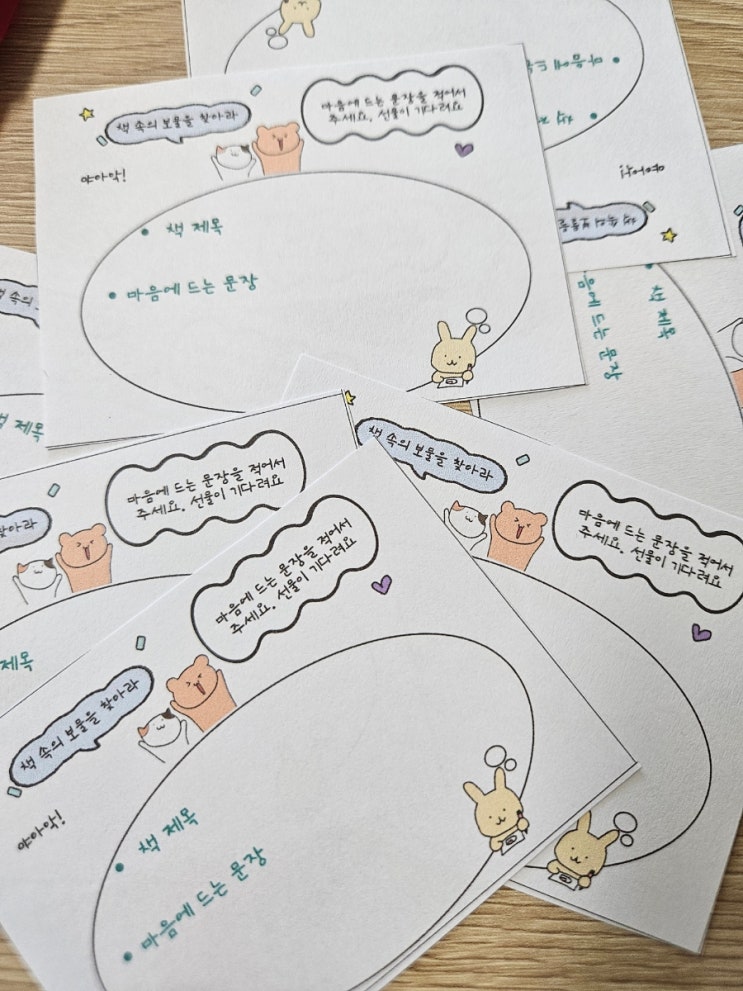 책 속의 보물을 찾아라
마음에 드는 문장을 적어서
주세요. 선물이 기다려요
야아악!
책 제목
마음에 드는 문장
마음에 드
책 제
야아악!
책 속의 보물을
책 제목
음에 드는 문장
책 속
책 제목
찾아라
마음에 드는 문장을 적어서
주세요. 선물이 기다려요
제목
책 속의 보물을 찾아라
마음에 드는 문장을 적어서
주세요. 선물이 기다려요
책 속의 보물을 찾아라
마음에 드는 문장을 적어서
주세요. 선물이 기다려요
야아악!
책 제목
마음에 드는 문장